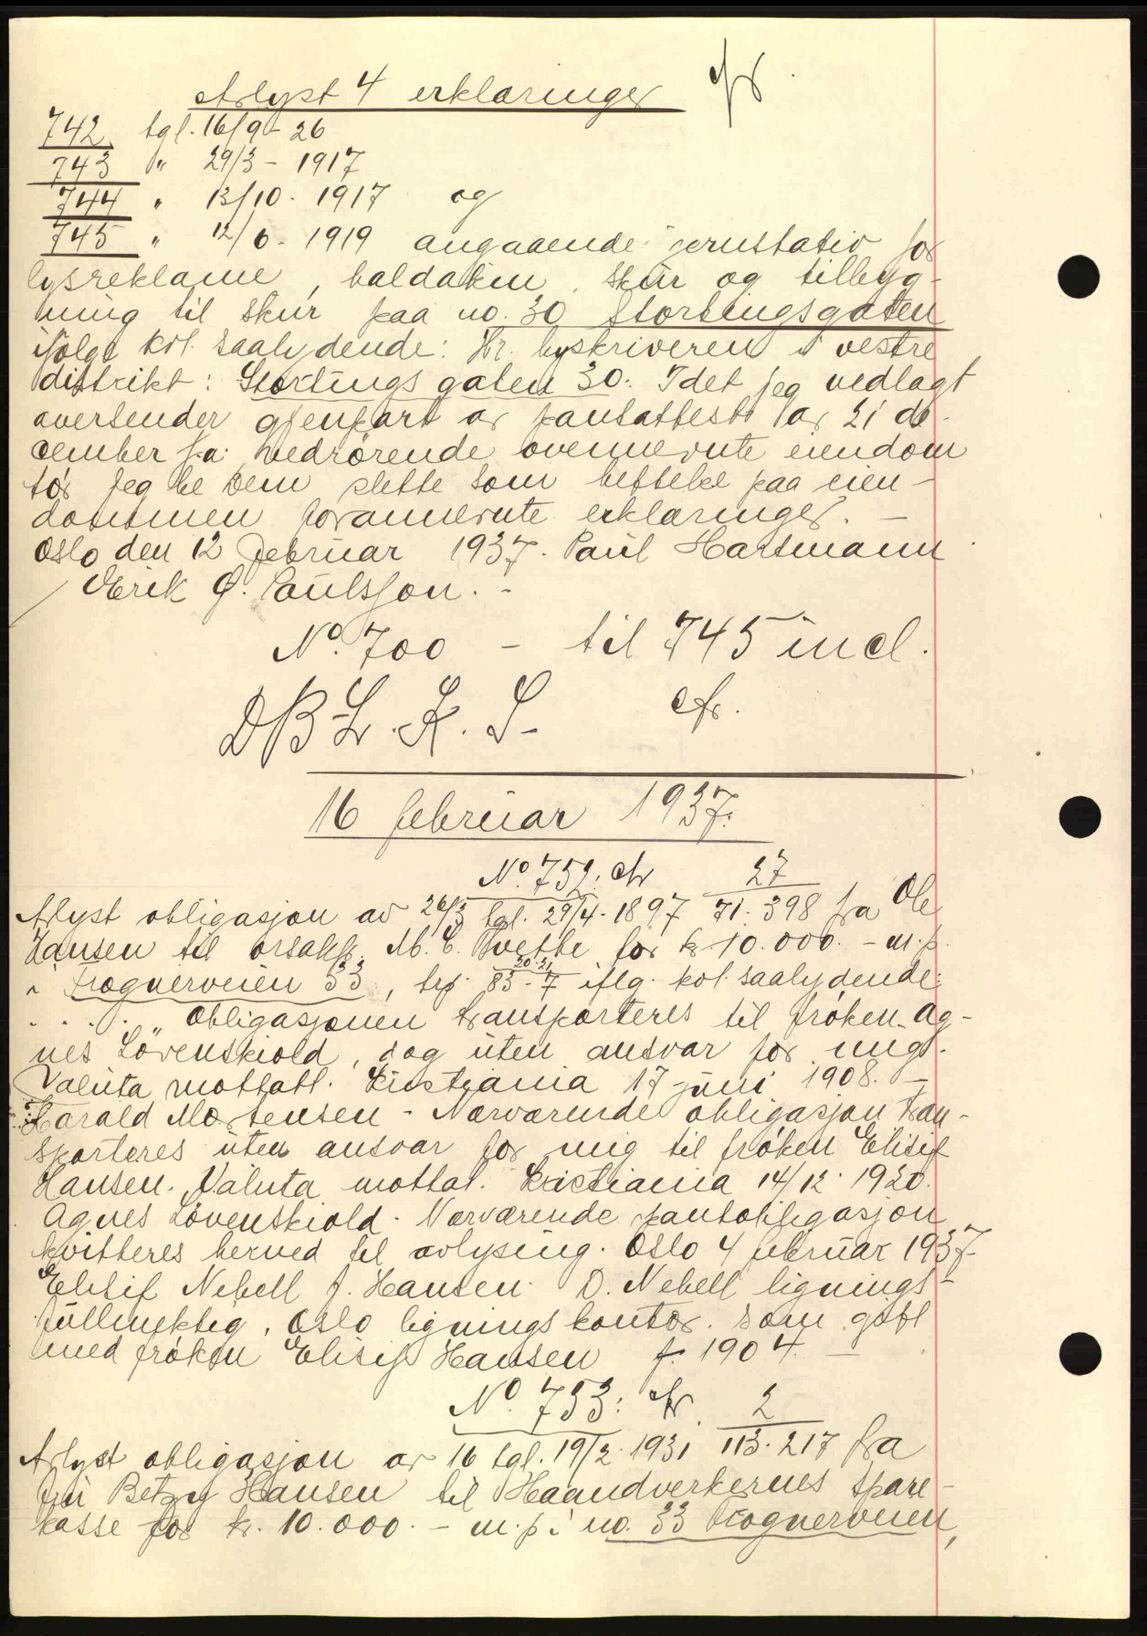 Avlyst 4 erklæringer cfr.
742 tgl. 16/9 - 26
743 " 29/3 - 1917
744 " 13/10 - 1917 og
745 " 12/6 - 1919 angaaende jernstativ for
lysreklame, baldakin, skur og tilbyg-
ning til skur paa no. 30 Stortingsgaten
ifølge kvl. saalydende: Hr. byskriveren i vestre
distrikt: Stortingsgaten 30. Idet jeg vedlagt
oversender gjenpart av pantattest av 21 de-
cember f.a. vedrørende ovennevnte eiendom
tør jeg be Dem slette som heftelse paa eien-
dommen forannevnte erklæringer. -
Oslo den 12 februar 1937. Paul Hartmann
/ Erik Ø. Paulsson. -
No. 700 - til 745 incl.
DBL. K. S. cfr.
16 februar 1937.
No. 752: cfr 27
Avlyst obligasjon av 26/3 tgl. 29/4 - 1897 71. 398 fra Ole
Hansen til orsakf. M. C. Tvethe for kr 10.000. - m.p.
i Frognerveien 33, 83 - 7 30.31 iflg. kvl. saalydende:
. . . . " Obligasjonen transporteres til frøken Ag-
nes Løvenskiold, dog uten ansvar for mig.
Valuta mottatt. Kristiania 17 juni 1908. -
Harald Mortensen - Nærværende obligasjon tran-
sporteres uten ansvar for mig til frøken Elisif
Hansen. Valuta mottat. Kristiania 14/12 - 1920.
Agnes Løvenskiold. Nærværende pantobligasjon
kvitteres herved til avlysing. Oslo 4 februar 1937.
Elisif Nebell f. Hansen. D. Nebell lignings-
fullmektig, Oslo ligningskontor. Som gift
med frøken Elisif Hansen f. 1904 -
No. 753: cfr. 2
Avlyst obligasjon av 16 tgl. 19/2 - 1931 113. 217 fra
fru Betzy Hansen til Haandverkernes spare-
kasse for kr. 10.000. - m.p. i no. 33 Frognerveien,